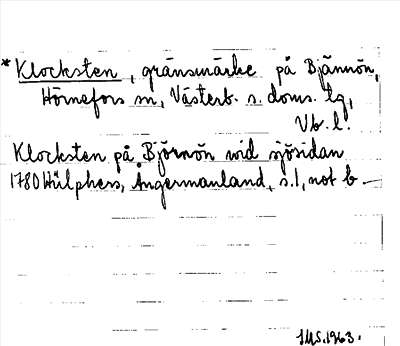 *Klocksten, gränsmärke på Bjännön,
Hörnefors sn, Västerb. s. doms. lg,
Vb. l.
Klocksten på Björnön wid sjösidan
1780 Hülphers, Ångermanland, s. 1, not b —
SMS. 1963.